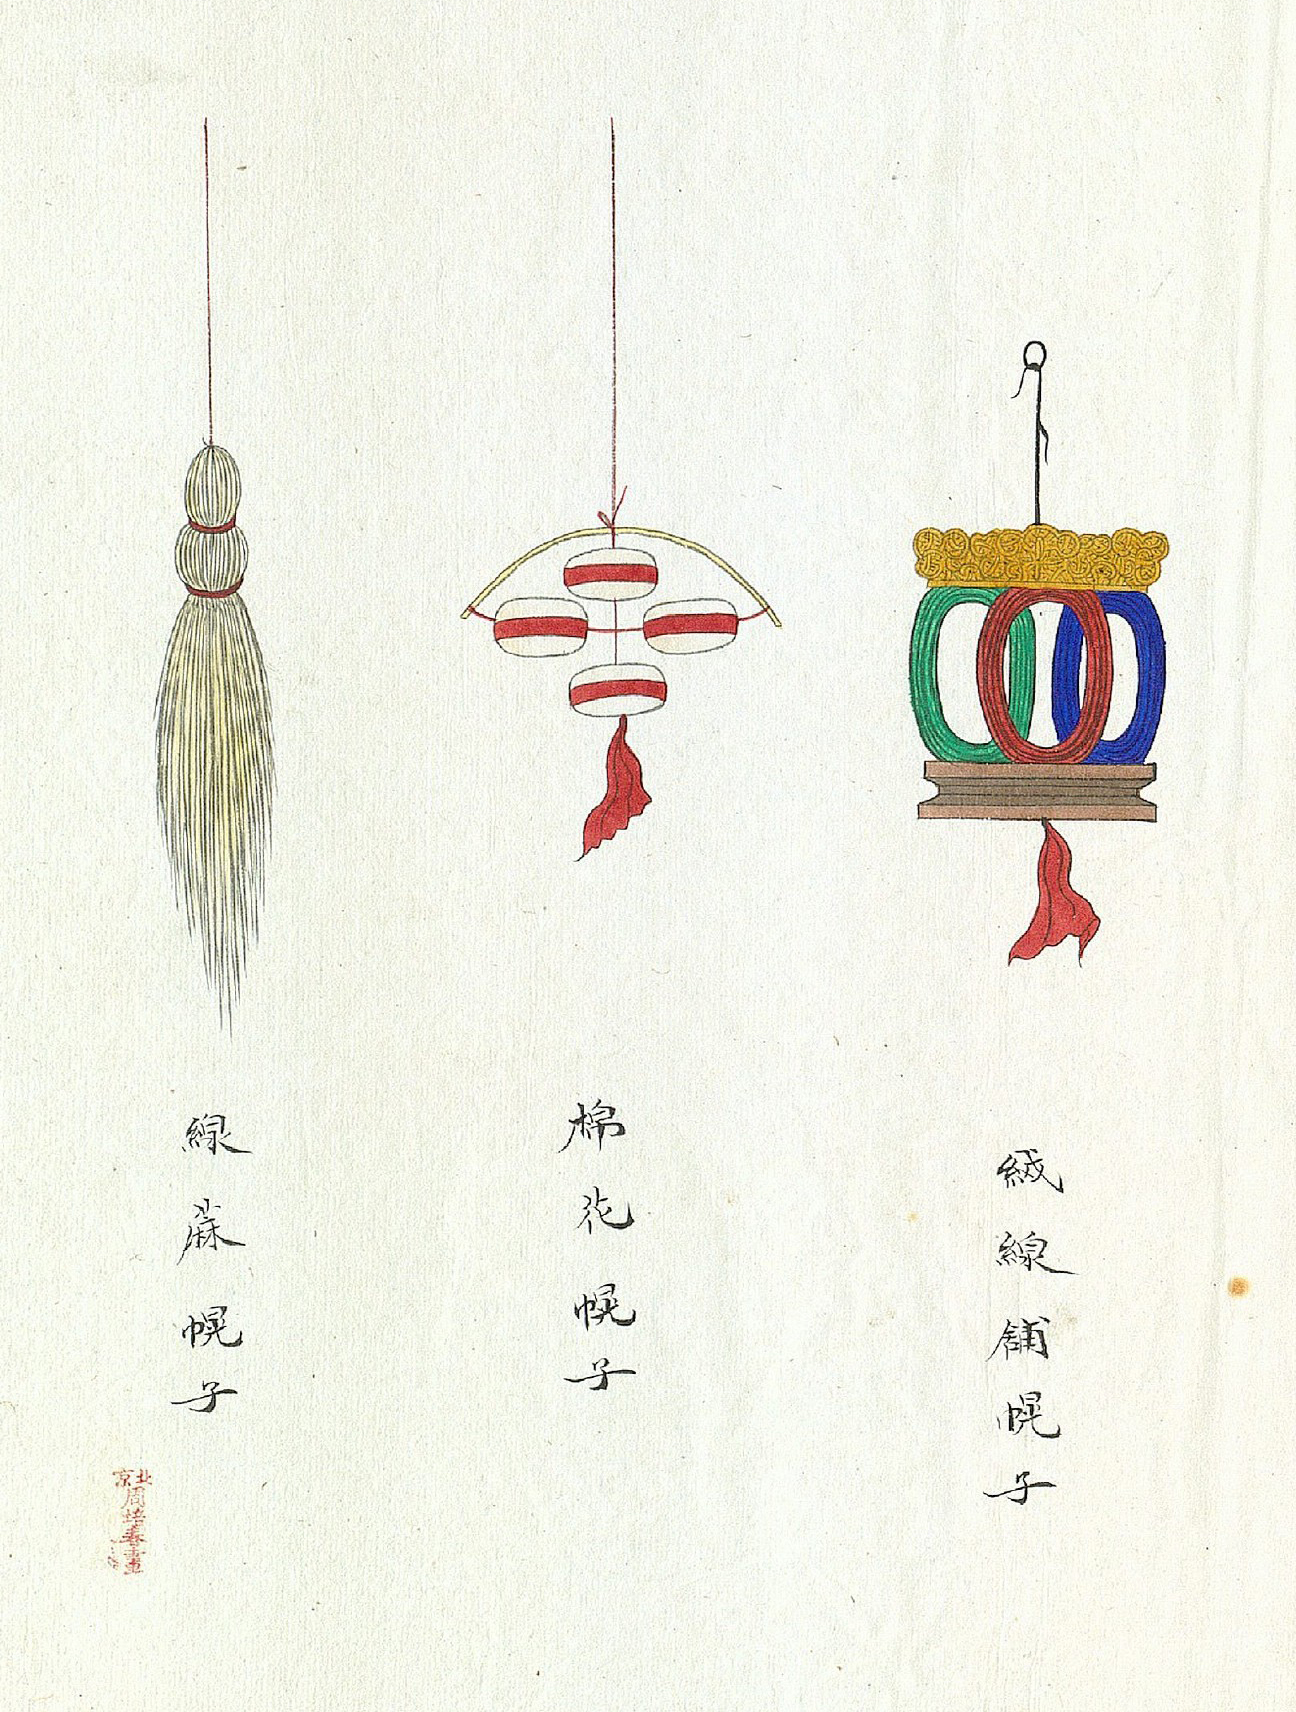 絨線舖幌子
棉花幌子
線蔴幌子
北京
周培春畫